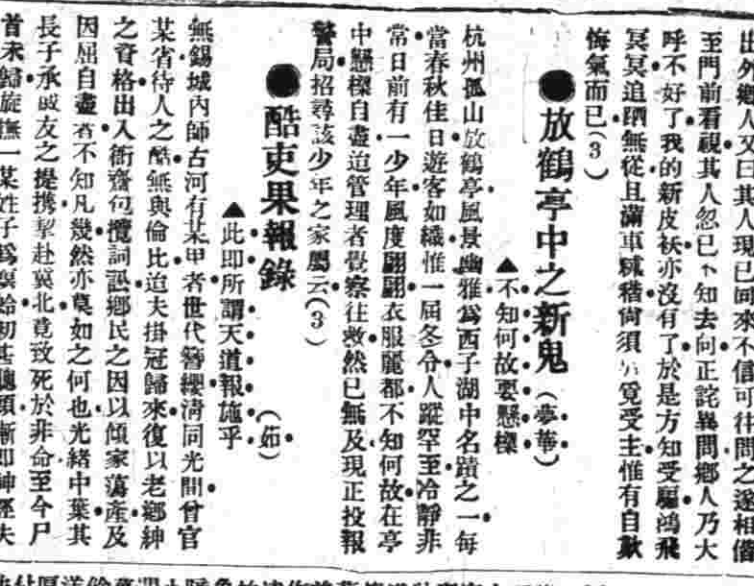 出外鄉人又曰其人現已回來不信可往問之遂相偕
至門前看視其人忽已不知去向正詫異間鄉人乃大
呼不好了我的新皮袄亦沒有了於是方知受騙鴻飛
冥冥追蹤無從且滿車稻尙須覓受主惟有自歎
悔氣而已(3)
●放鶴亭中之新鬼(夢華)
▲不知何故要懸樑
杭州孤山放鶴亭風景幽雅爲西子湖中名蹟之一每
當春秋佳日遊客如織惟一屆冬令人蹤罕至冷靜非
常日前有一少年風度翩翩衣服麗都不知何故在亭
中懸樑自盡迨管理者覺察往救然已無及現正投報
警局招尋該少年之家屬云(3)
●酷吏果報錄(茹)
▲此卽所謂天道報施乎
無錫城內師古河有某甲者世代簪纓淸同光間曾官
某省待人之酷無與倫比迨夫掛冠歸來復以老鄉紳
之資格出入衙齋包攬詞訟鄉民之因以傾家蕩產及
因屈自盡者不知凡幾然亦莫如之何也光緒中葉其
長子承戚友之提携挈赴冀北竟致死於非命至今尸
首未歸旋撫一某姓子爲螟蛉初甚聰頴漸卽神經失